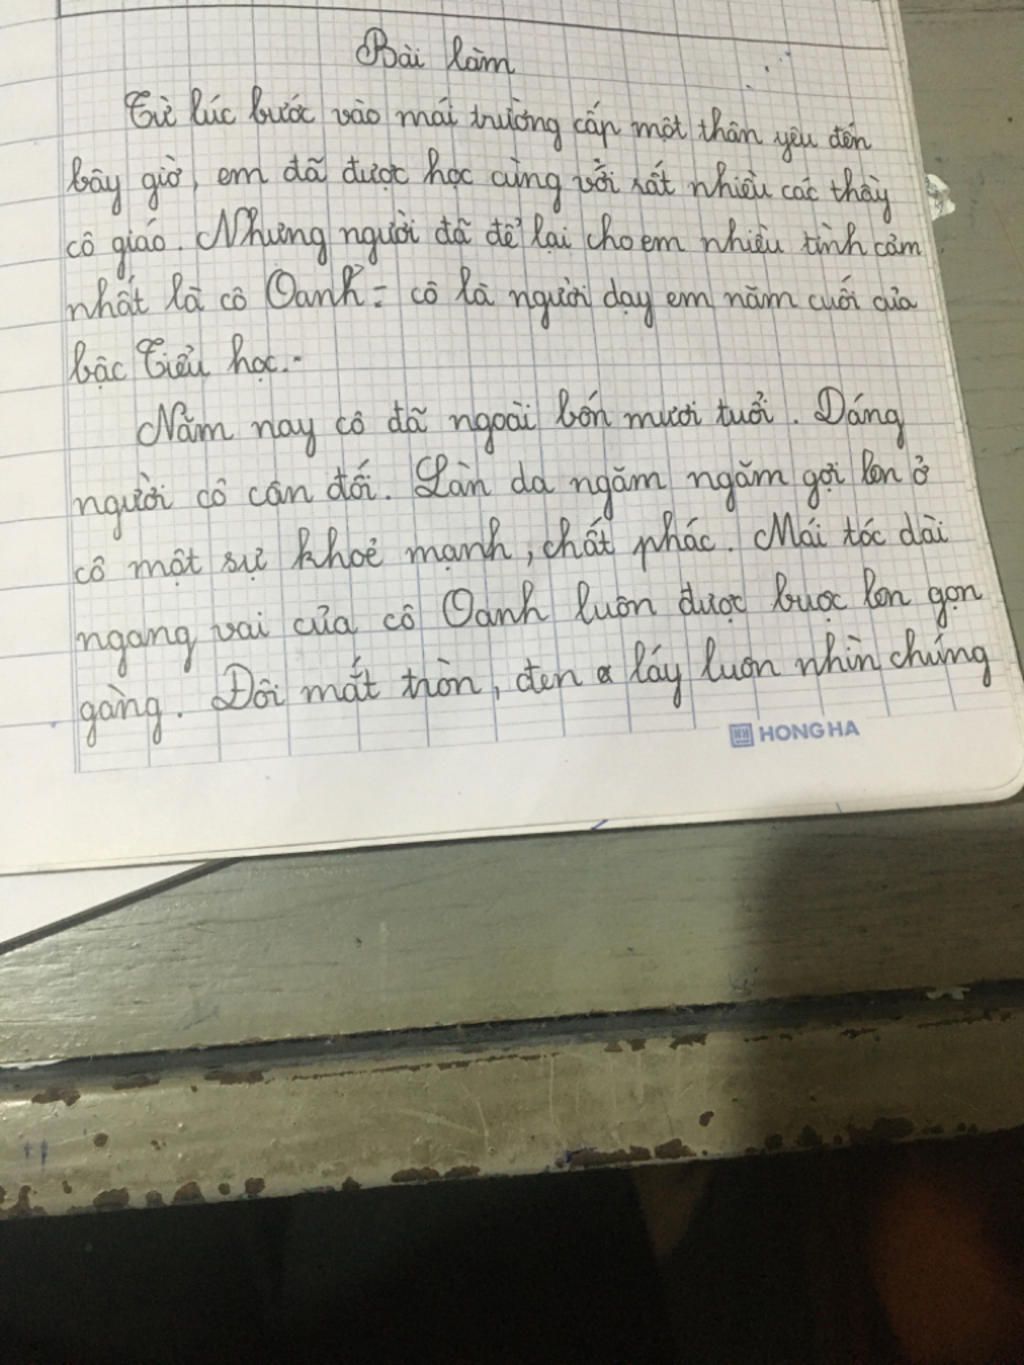 Bài làm
Từ lúc bước vào mái trường cấp một thân yêu đến
bây giờ, em đã được học cùng với rất nhiều các thầy
cô giáo. Nhưng người đã để lại cho em nhiều tình cảm
nhất là cô Oanh - cô là người dạy em năm cuối của
bậc Tiểu học.
Năm nay cô đã ngoài bốn mươi tuổi. Dáng
người cô cân đối. Làn da ngăm ngăm gợi lên ở
cô một sự khoẻ mạnh, chất phác. Mái tóc dài
ngang vai của cô Oanh luôn được buộc lên gọn
gàng. Đôi mắt tròn, đen láy luôn nhìn chúng
HONG HA